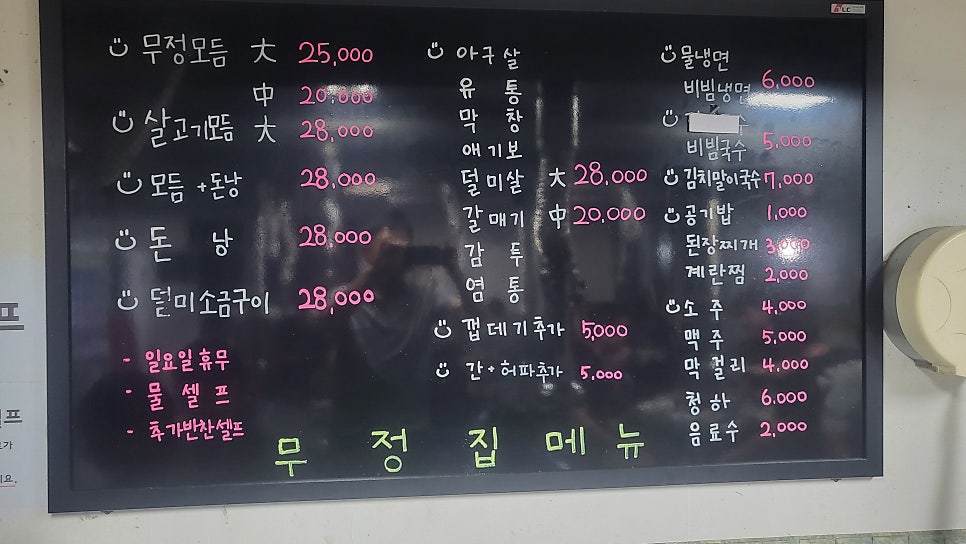 무정모듬 大 25,000
中 20,000
살고기모듬 大 28,000
모듬 +돈낭 28,000
돈 낭 28,000
덜미소금구이 28,000
- 일요일휴무
- 물 셀 프
- 추가반찬셀프
아구살
유 통
막 창
애기보
덜미살 大 28,000
갈매기 中 20,000
감 투
염 통
껍데기추가 5,000
간+허파추가 5,000
물냉면
비빔냉면 6,000
수
비빔국수 5,000
김치말이국수 7,000
공기밥 1,000
된장찌개 3,000
계란찜 2,000
소 주 4,000
맥 주 5,000
막걸리 4,000
청하 6,000
음료수 2,000
무 정 집 메 뉴
프